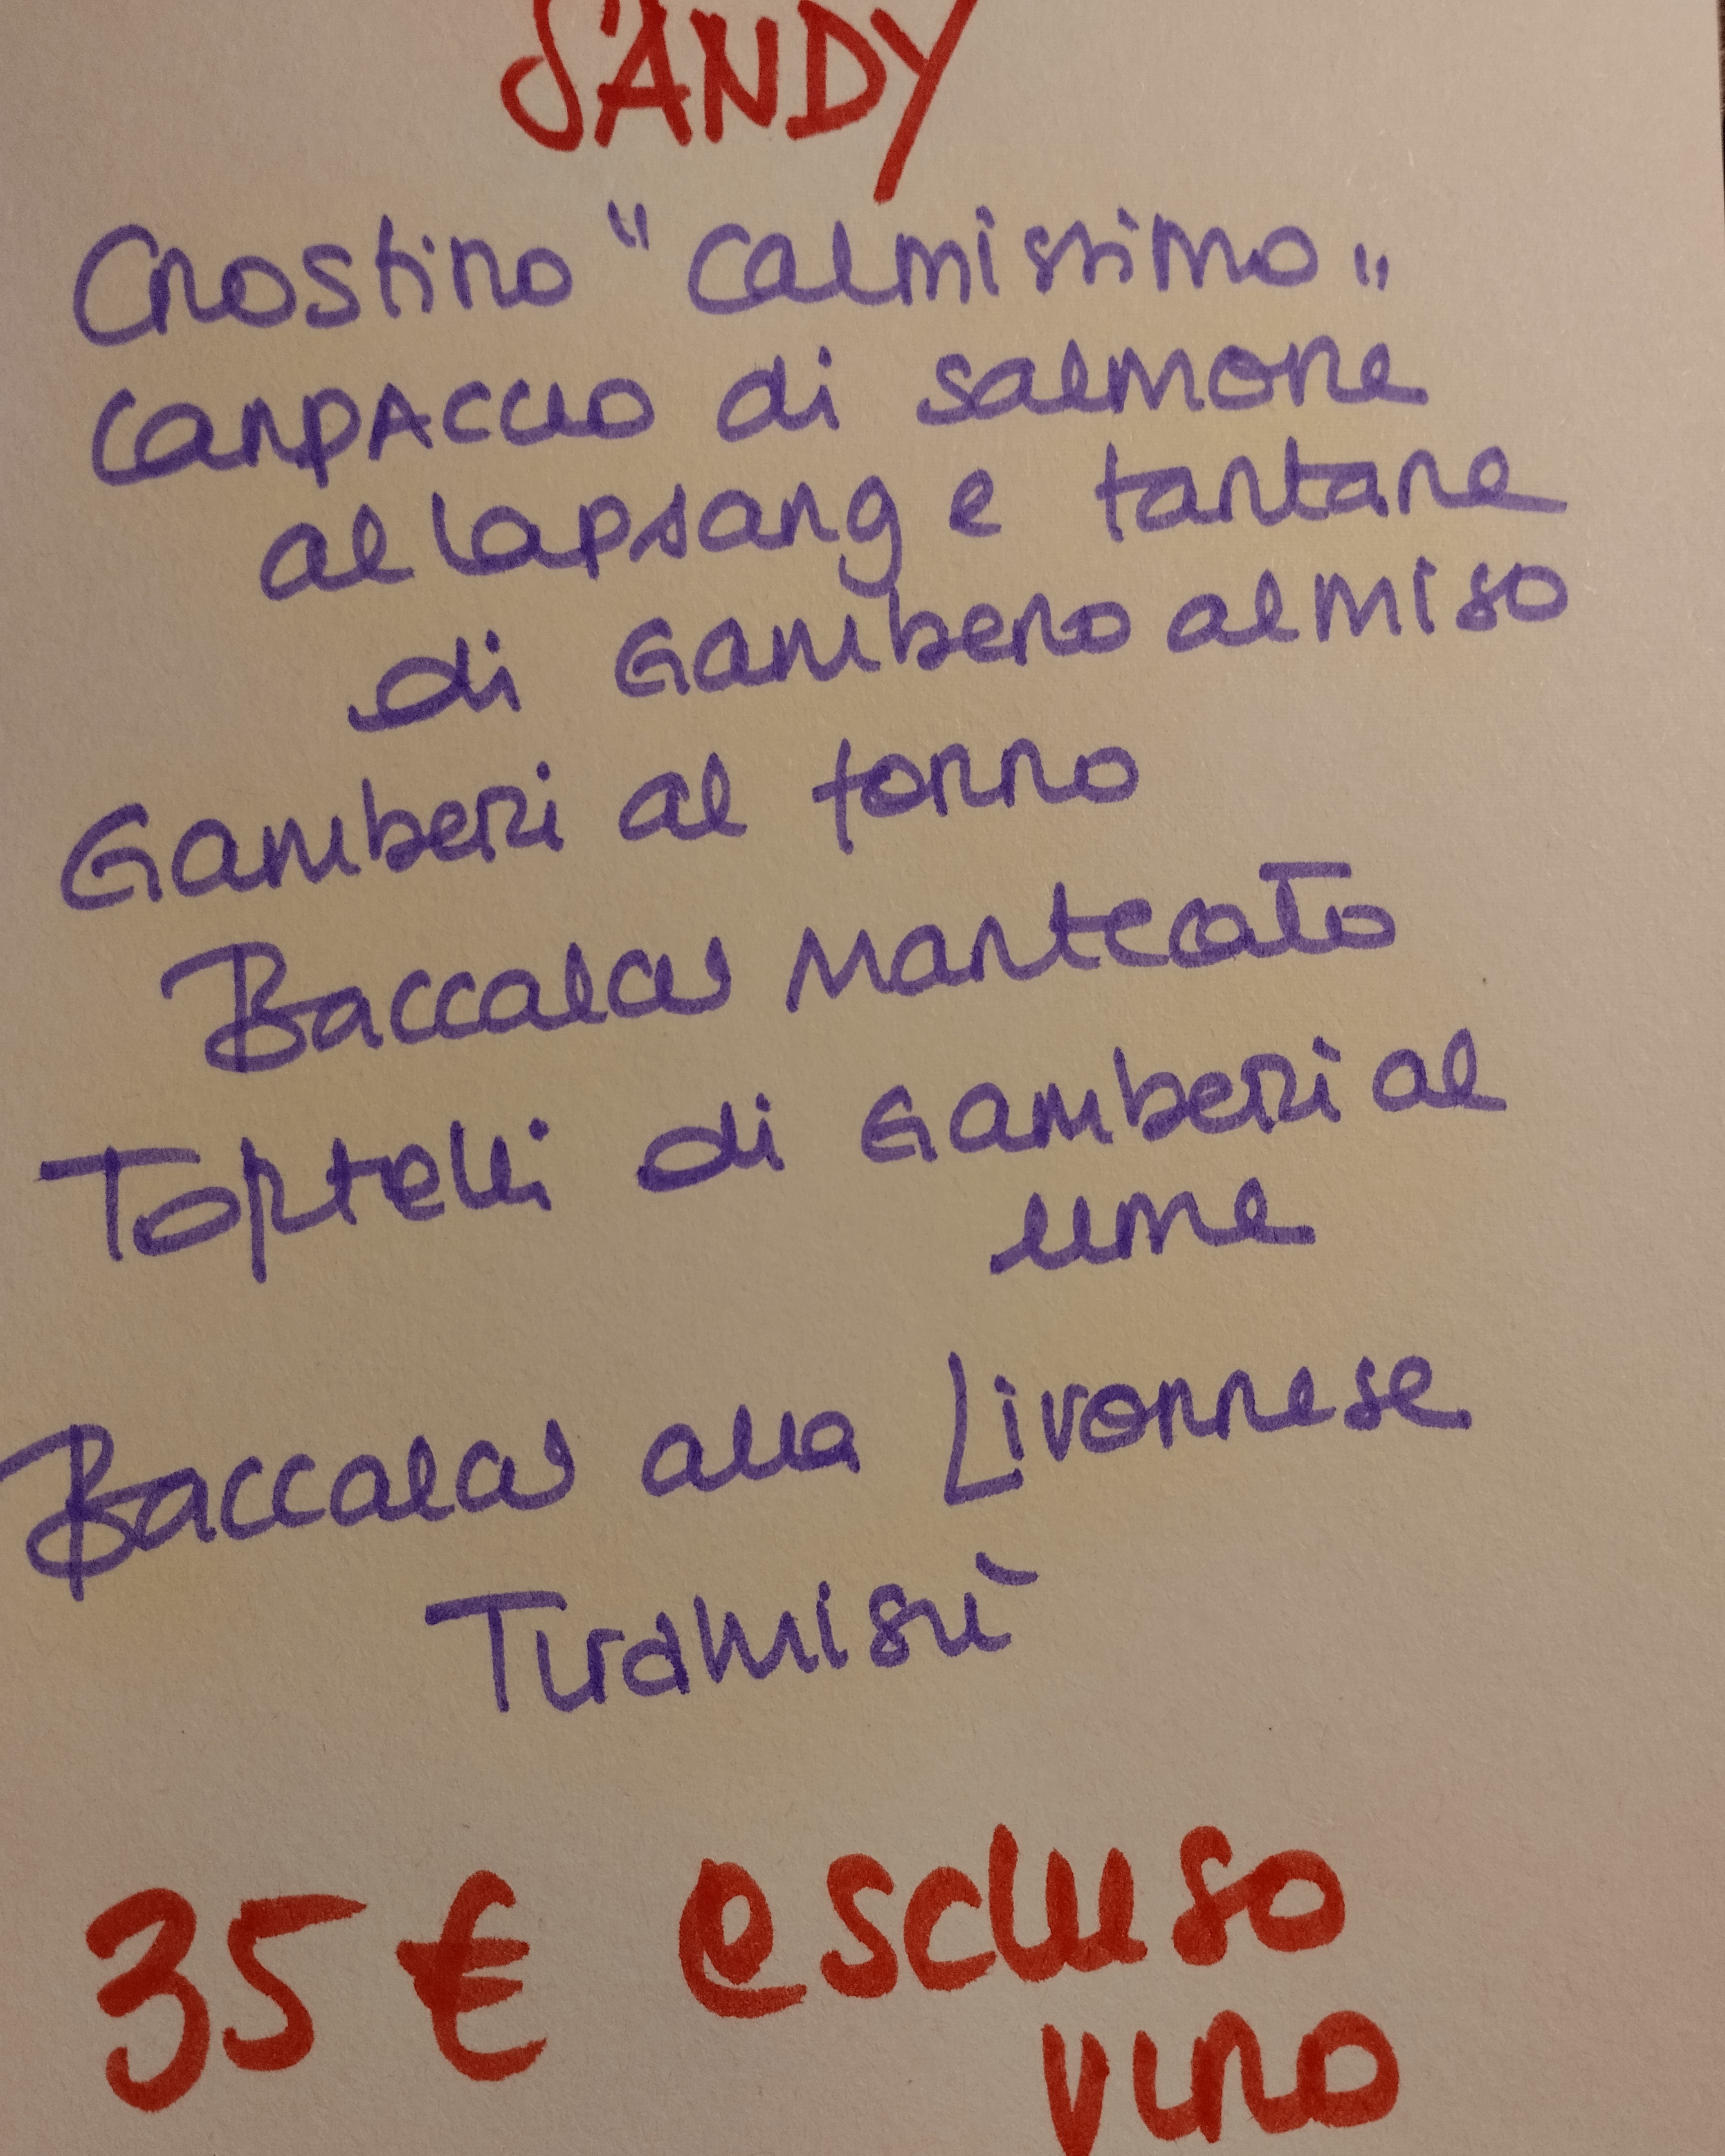 SANDY
Crostino "calmissimo"
Carpaccio di salmone
al lapsang e tartare
di Gambero al miso
Gamberi al forno
Baccalà mantecato
Tortelli di Gamberi al
lime
Baccalà alla Livornese
Tiramisù
35€ escluso
vino